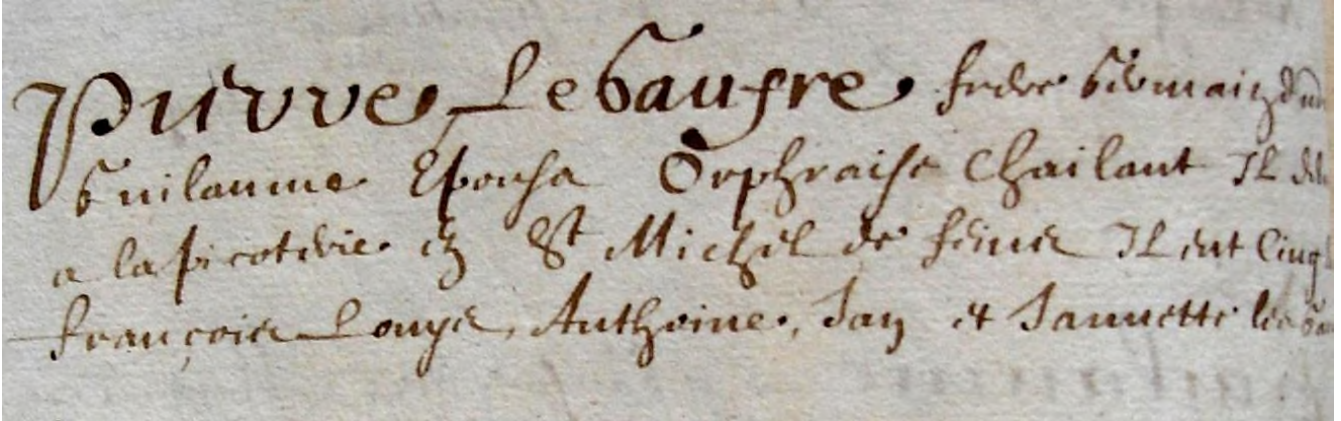 Pierre LeGaufre frere Germain dud
Guilaume Epousa Orphraise Chailant IL
a la picoterie en St Michel de feins IL eut Cinq
françois Louys, Anthoine, Jan et Jannette les